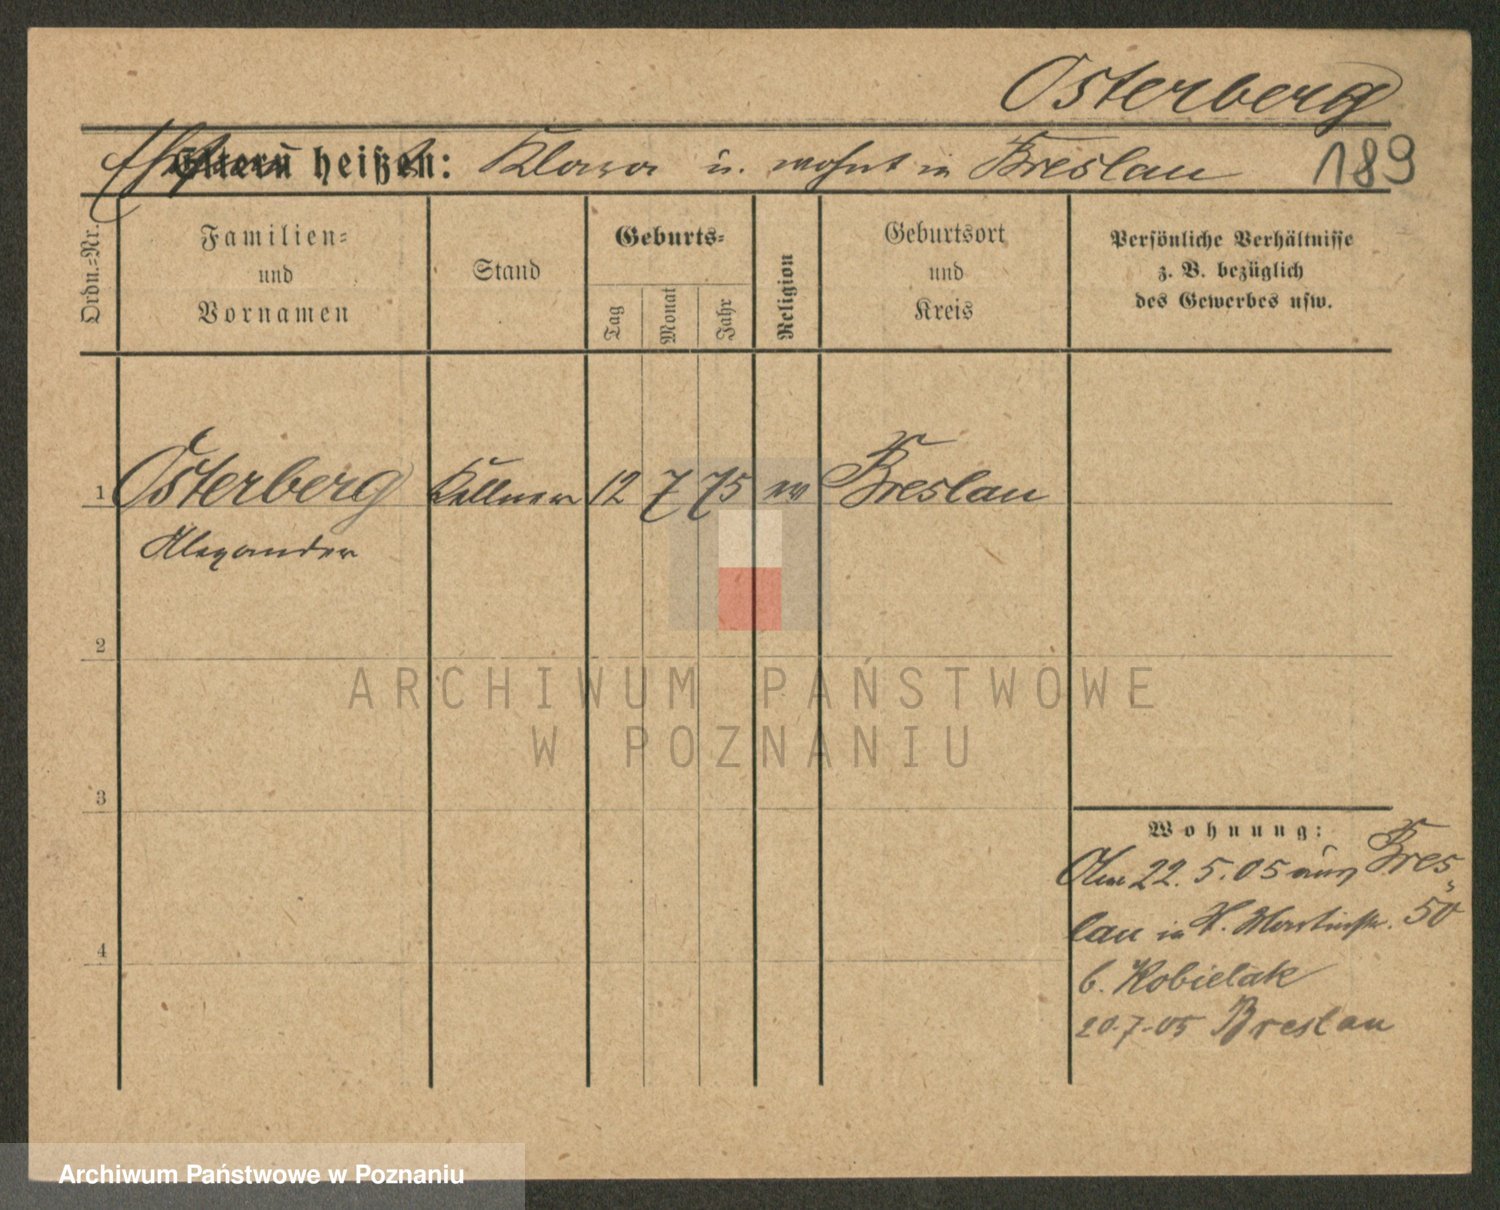 Osterberg
Ehefrau heißt: Klara u. wohnt in Breslau 189
Ordn.-Nr.
Familien-
und
Vornamen
Stand
Geburts-
Tag
Monat
Jahr
Religion
Geburtsort
und
Kreis
Persönliche Verhältnisse
z. B. bezüglich
des Gewerbes usw.
1 Osterberg Kellner 12 7 75 ev Breslau
Alexander
2
ARCHIWUM PAŃSTWOWE
W POZNANIU
3
Wohnung:
Am 22. 5. 05 aus Bres-
lau in St. Martinstr. 50
b. Kobielak
20.7.05 Breslau
4
Archiwum Państwowe w Poznaniu